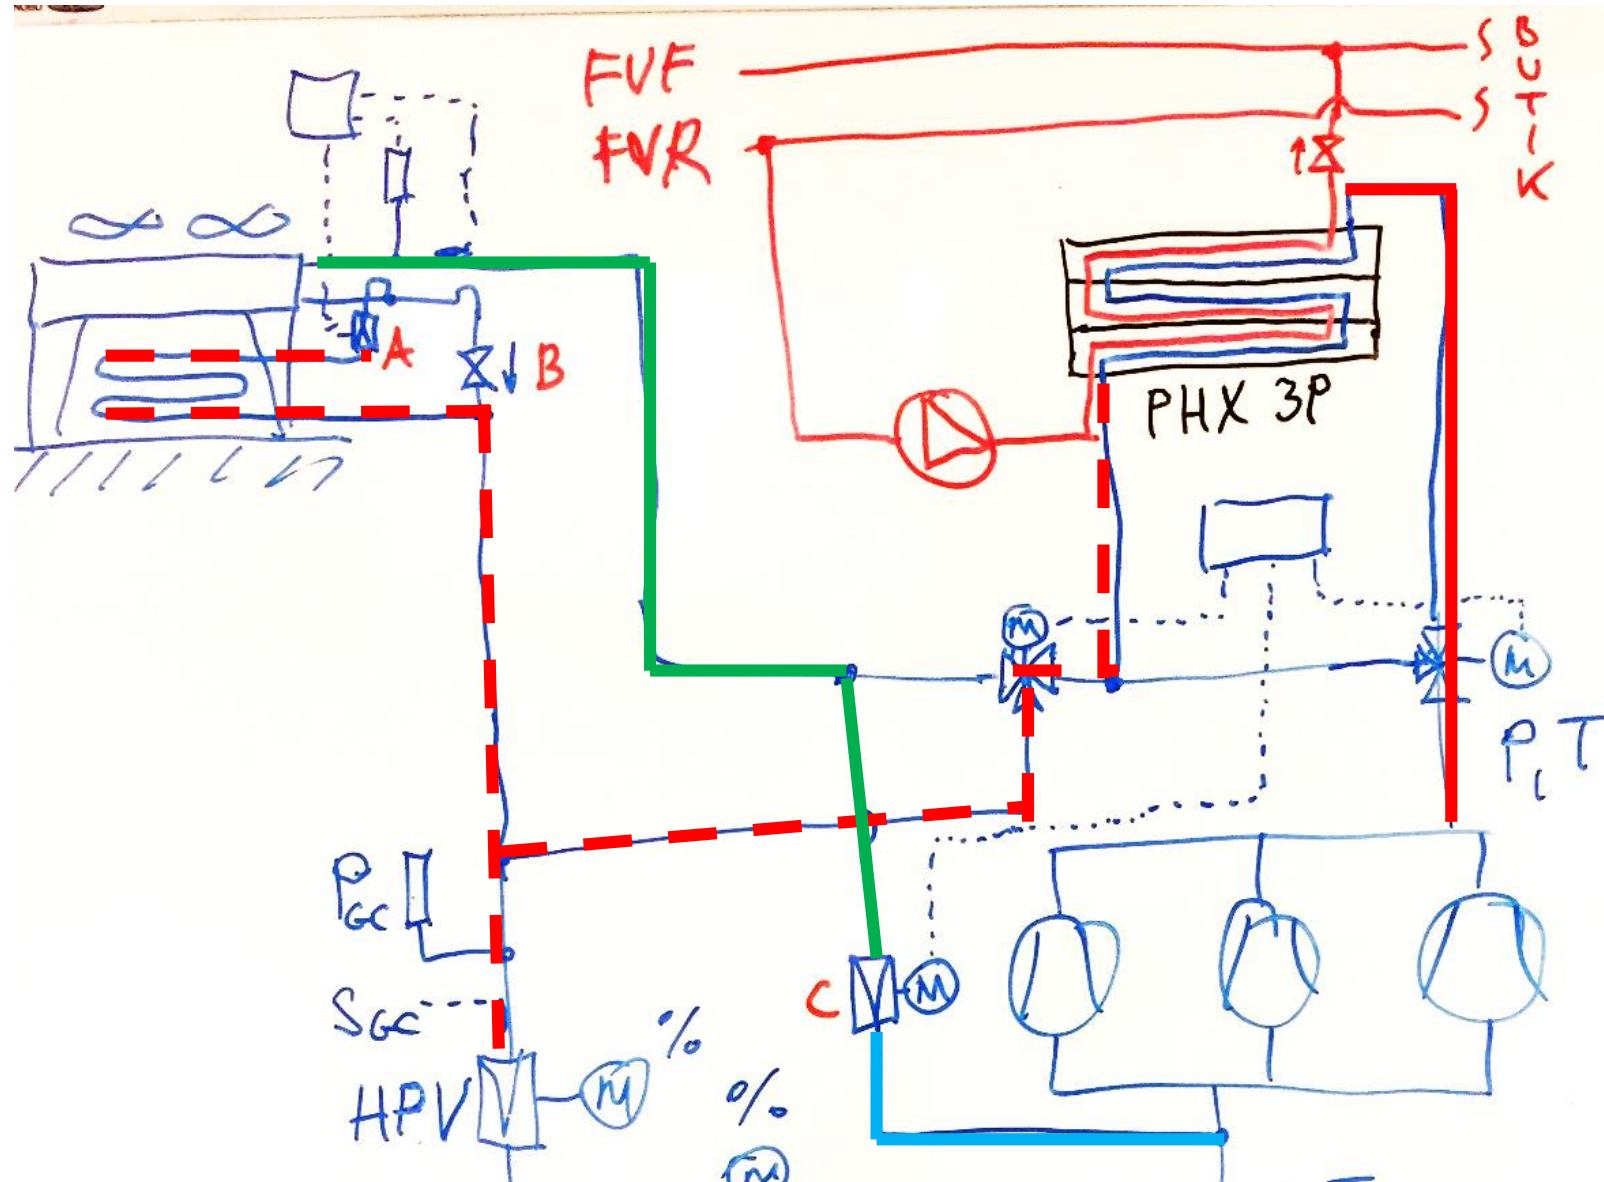 FVF
FVR
S
S
B
U
T
I
K
A
B
PHX 3P
M
M
P, T
PGC
SGC
C
M
HPV
M
%
%
M